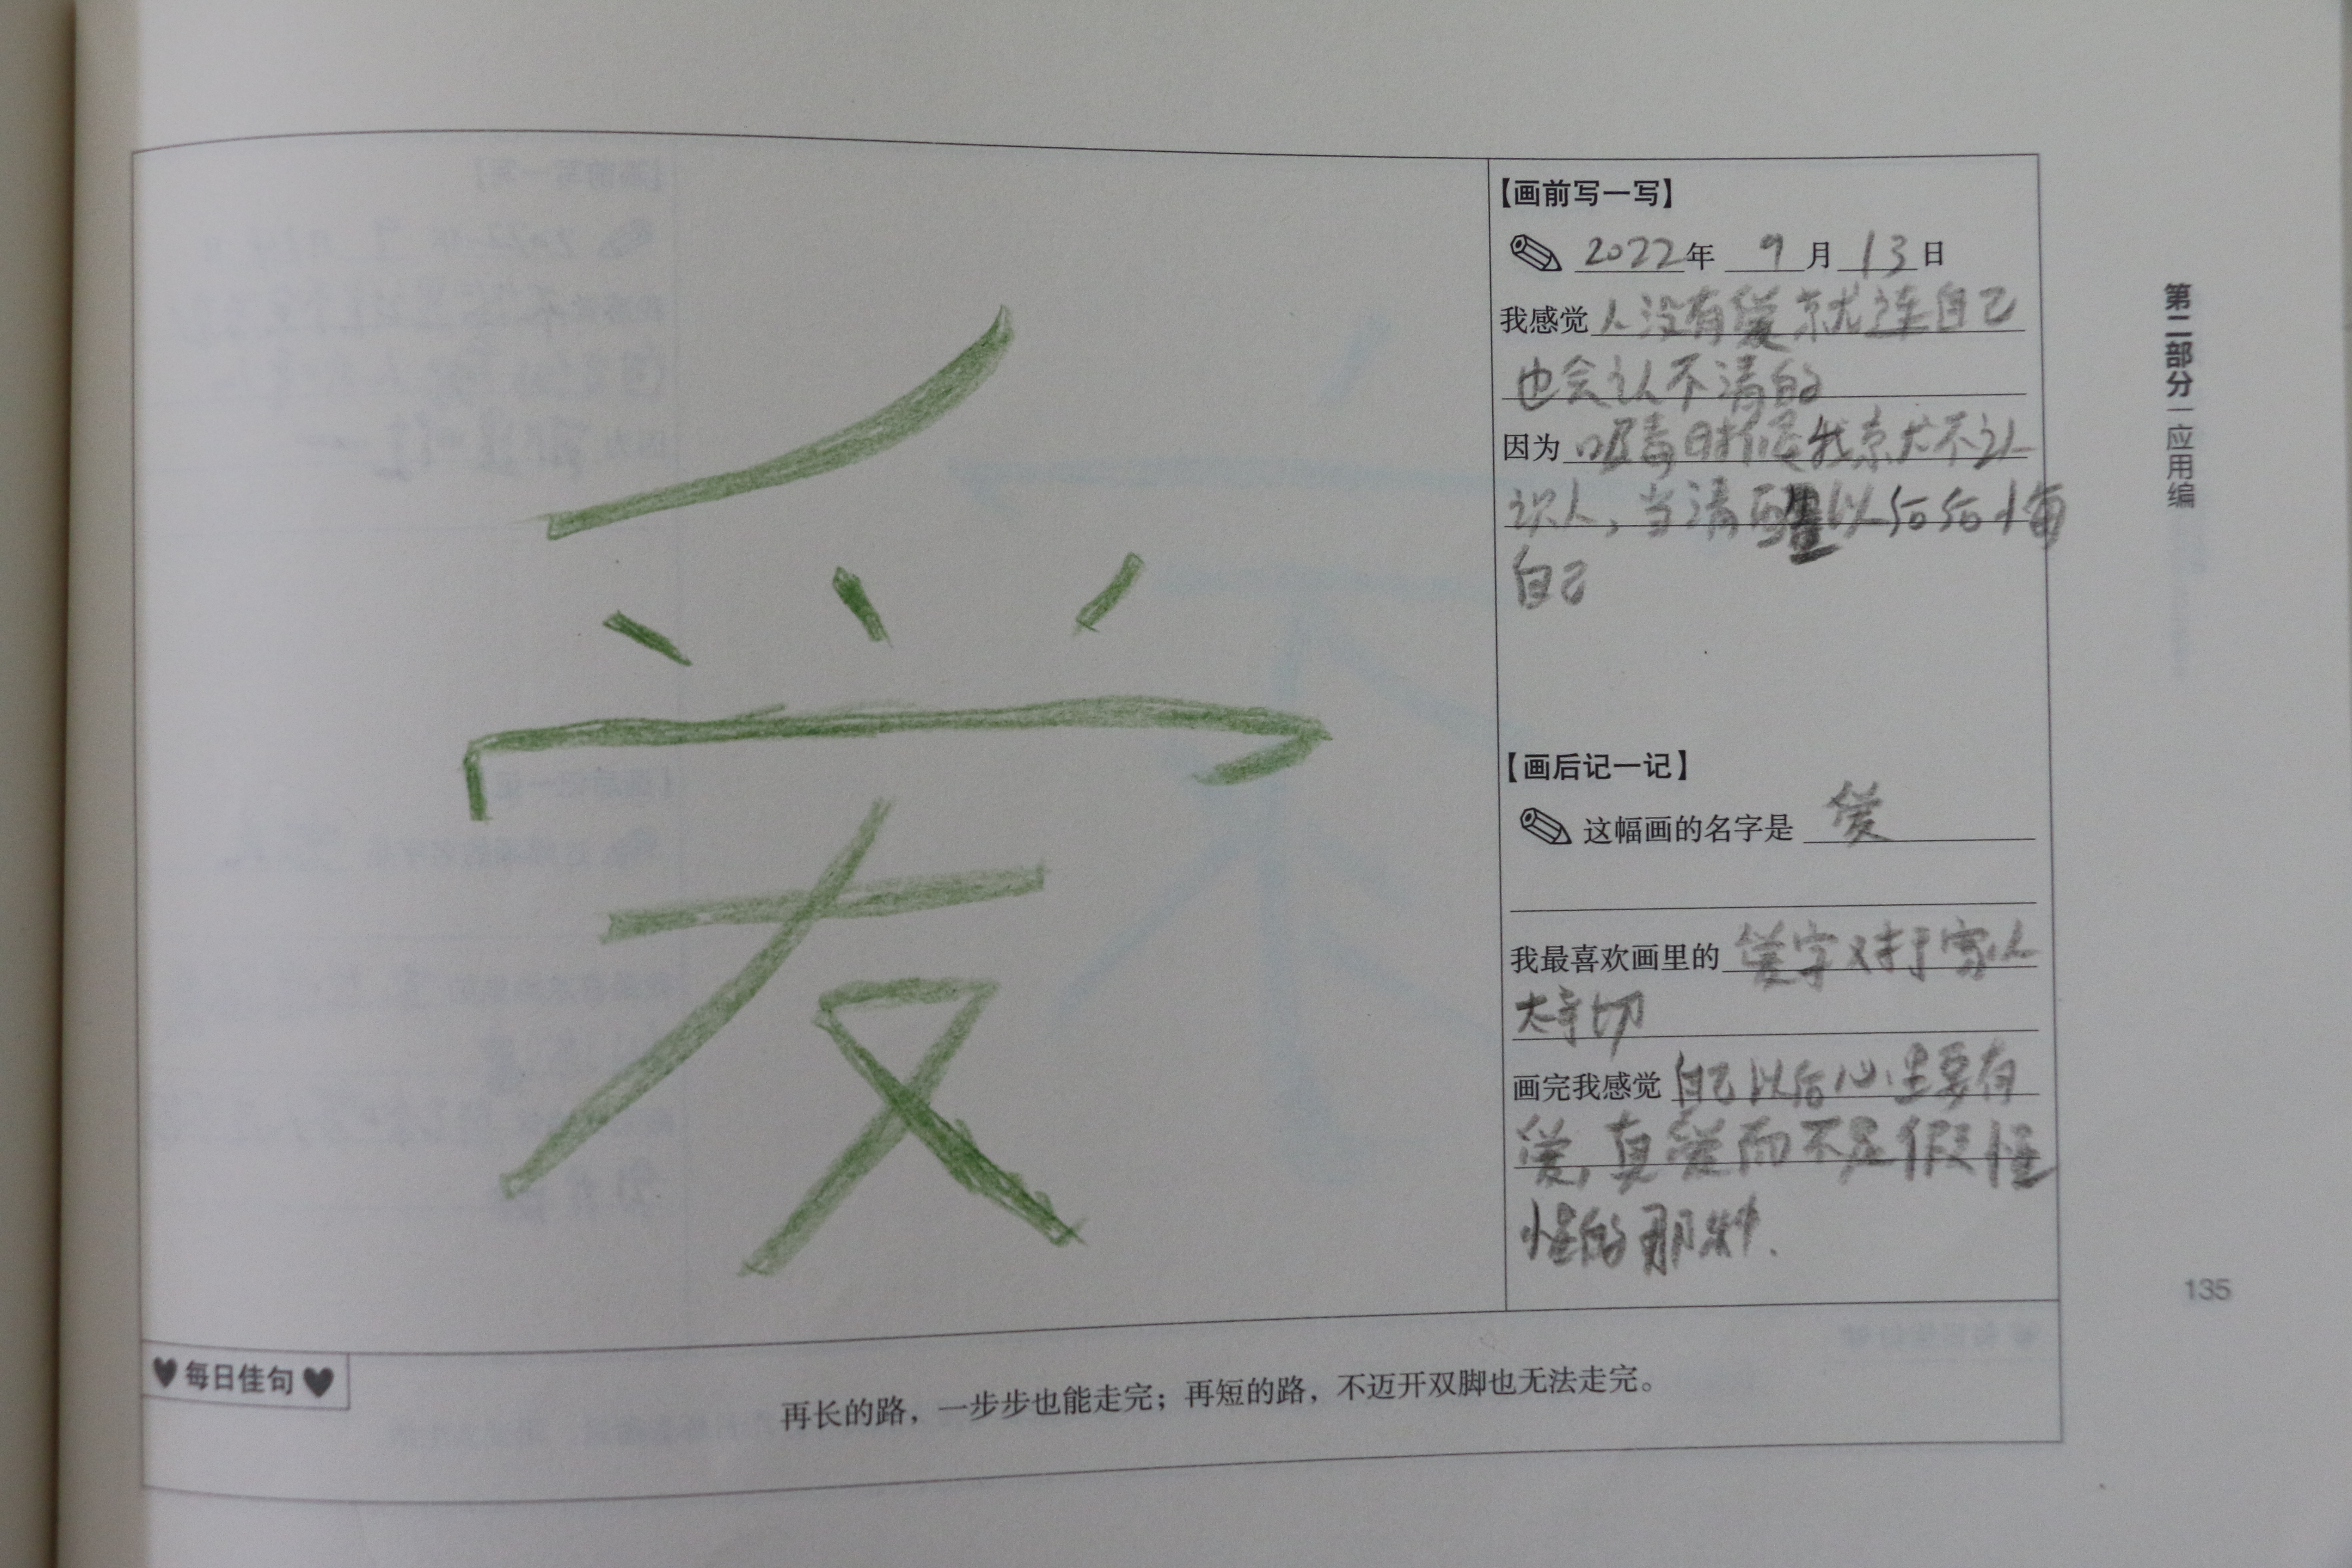 爱
【画前写一写】
2022年 9月13日
我感觉人没有爱就连自己
也会认不清的
因为吸毒时候我就不认
识人，当清醒以后后悔
自己
【画后记一记】
这幅画的名字是 爱
我最喜欢画里的 爱字对于家人
太亲切
画完我感觉 自己以后心里要有
爱，真爱而不是假惺
惺的那种.
每日佳句
再长的路，一步步也能走完；再短的路，不迈开双脚也无法走完。
第二部分 应用编
135